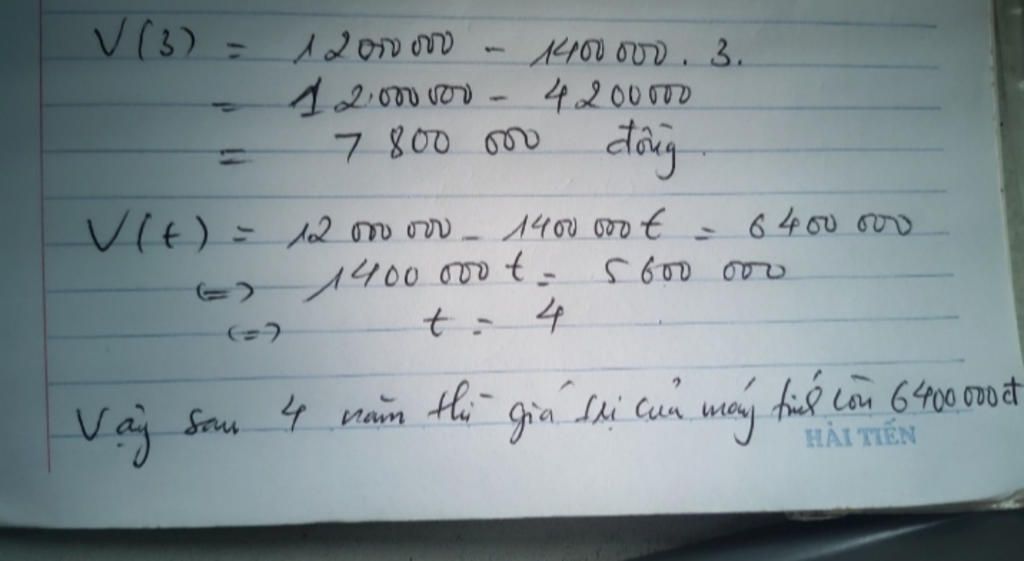 V(3) = 12000000 - 1400000. 3.
= 12.000000 - 4200000
= 7 800 000 đồng.
V(t) = 12 000 000 - 1400 000t = 6400 000
<=> 1400 000 t = 5600 000
<=> t = 4
Vậy sau 4 năm thì giá trị của máy tính còn 6400 000đ
HẢI TIẾN